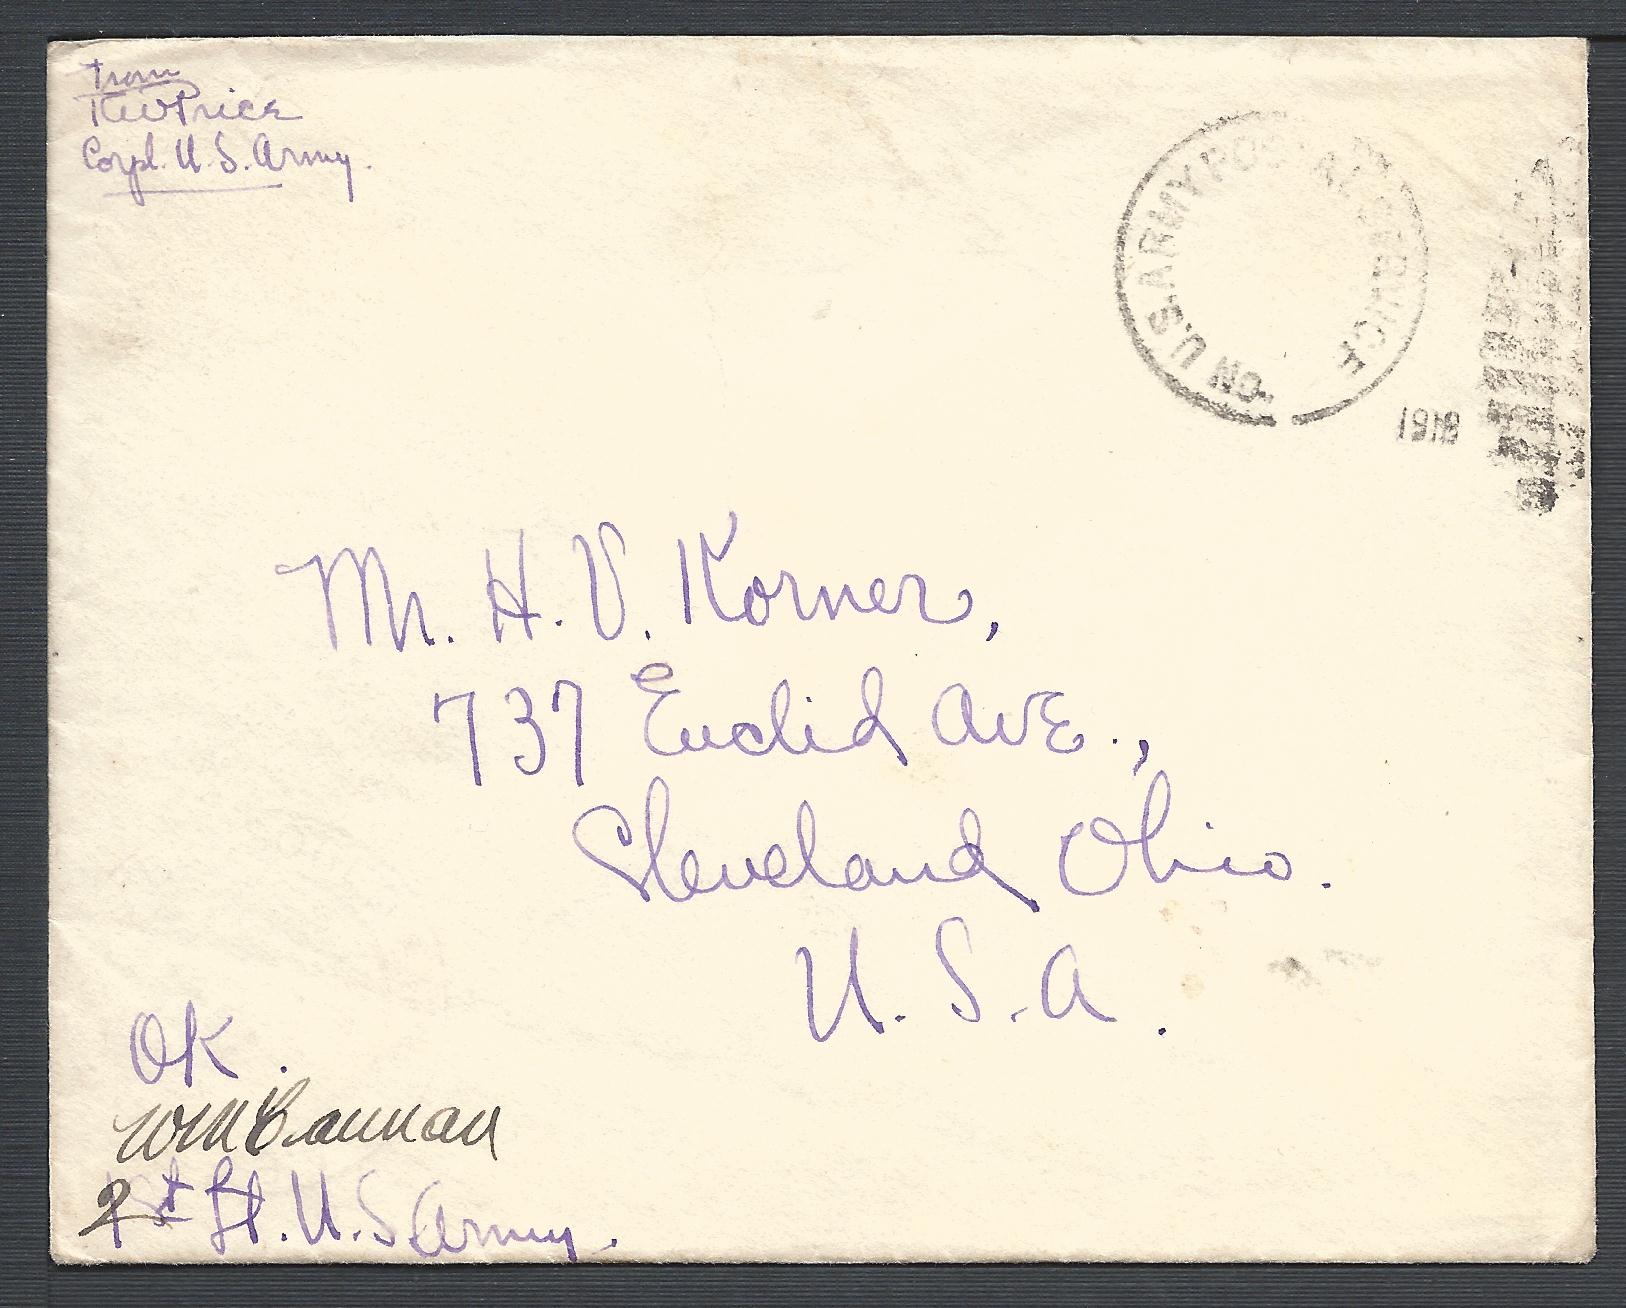 From
KW Price
Corpl. U.S. Army.
U.S. ARMY POSTAL SERVICE
1918
Mr. H. V. Korner,
737 Euclid Ave.,
Cleveland Ohio.
U. S. A.
OK.
2 st Lt. U. S Army.